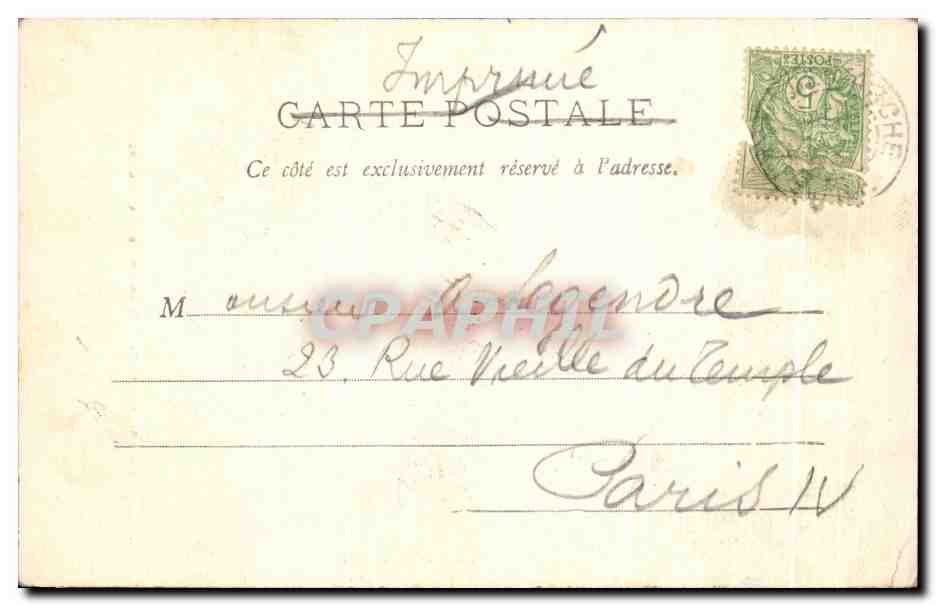 Imprimé
CARTE POSTALE
Ce côté est exclusivement réservé à l'adresse.
POSTES
5
CHE
Monsieur A. Legendre
CPAPHIL
23. Rue Vieille du Temple
Paris IV